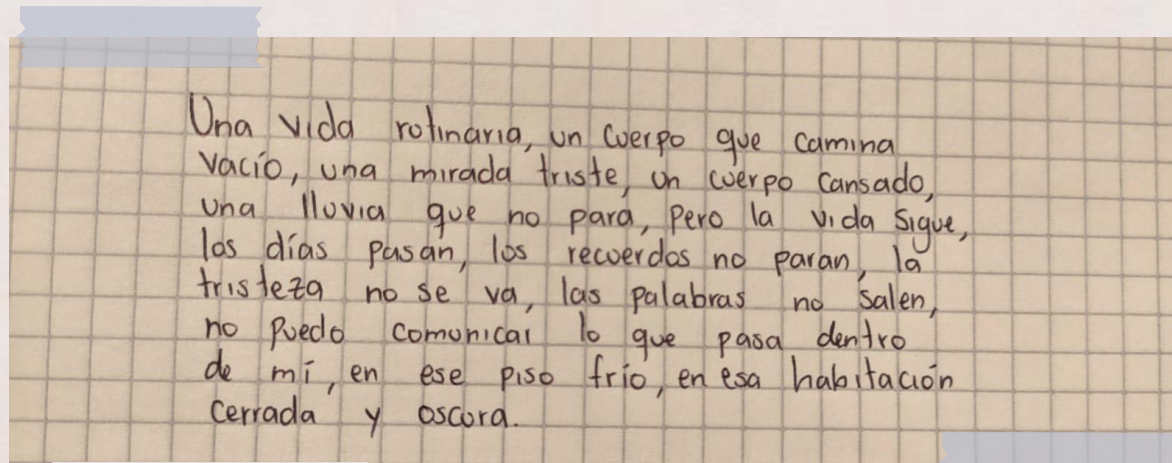 Una vida rotinaria, un cuerpo que camina
vacío, una mirada triste, un cuerpo cansado,
una lluvia que no para, pero la vida sigue,
los días pasan, los recuerdos no paran, la
tristeza no se va, las palabras no salen,
no puedo comunicar lo que pasa dentro
de mí, en ese piso frío, en esa habitación
cerrada y oscura.